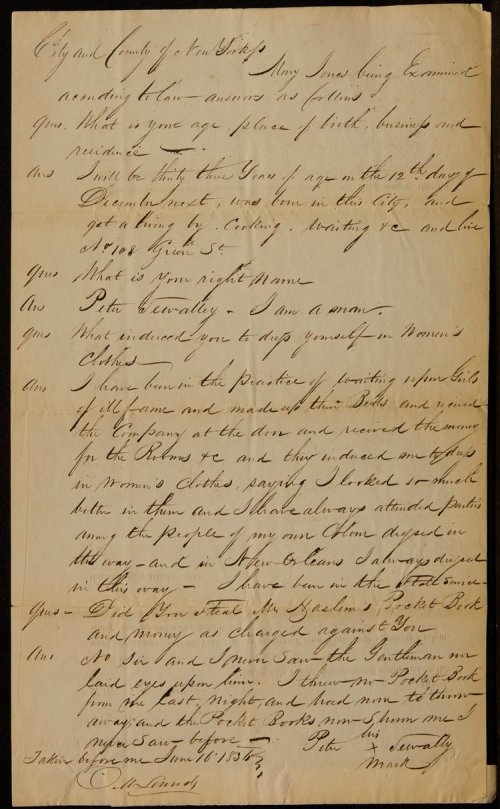 City and County of New York ss
Mary Jones being Examined
according to law - answers as follows
Ques. What is your age, place of birth, business and
residence -
Ans I will be thirty three Years of age on the 12th day of
December next, was born in this City, and
get a living by Cooking, Waiting &c and live
No 108 Green St
Ques What is your right Name
Ans Peter Sewalley - I am a man.
Ques What induced you to dress yourself in Women's
Clothes -
Ans I have been in the practice of waiting upon Girls
of ill fame and made up their Beds and received
the Company at the door and received the money
for the Rooms &c and they induced me to dress
in Women's Clothes, saying I looked so much
better in them and I have always attended parties
among the people of my own Colour dressed in
this way - and in New Orleans I always dressed
in this way - I have been in the State service -
Ques - Did You Steal Mr Haslem's Pocket Book
and money as charged against You
Ans No Sir and I never saw the Gentleman nor
laid eyes upon him. I threw no Pocket Book
from me last night, and had none to throw
away, and the Pocket Books now shown me I
never saw before -
Peter his x mark Sewally
Taken before me June 16 1836